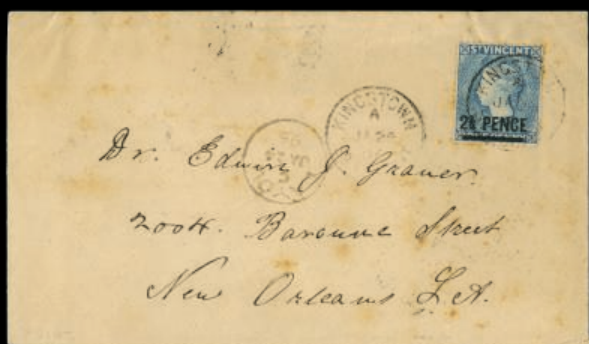 ST VINCENT
2½ PENCE
KINGSTOWN
A
Dr. Edwin J. Grauer.
2004. Baronne Street
New Orleans LA.